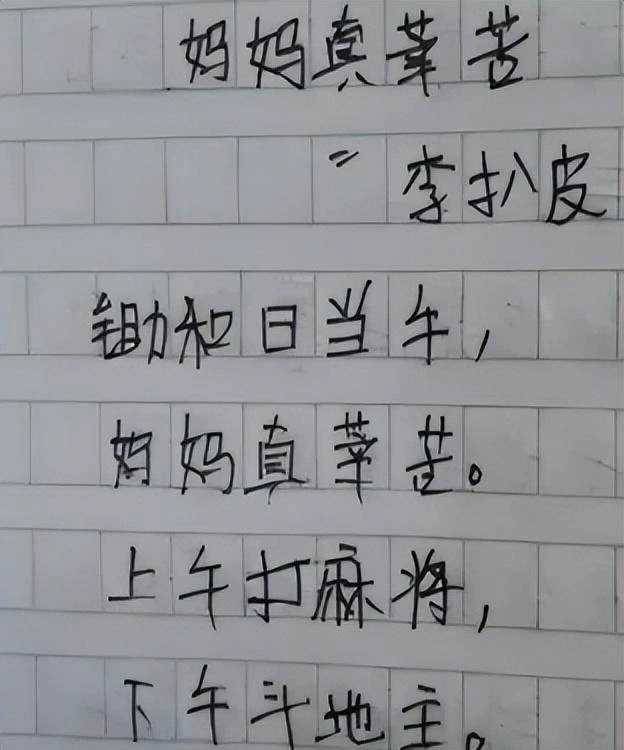 妈妈真莘苦
李扒皮
锄和日当午，
妈妈真莘苦。
上午打麻将，
下午斗地主。